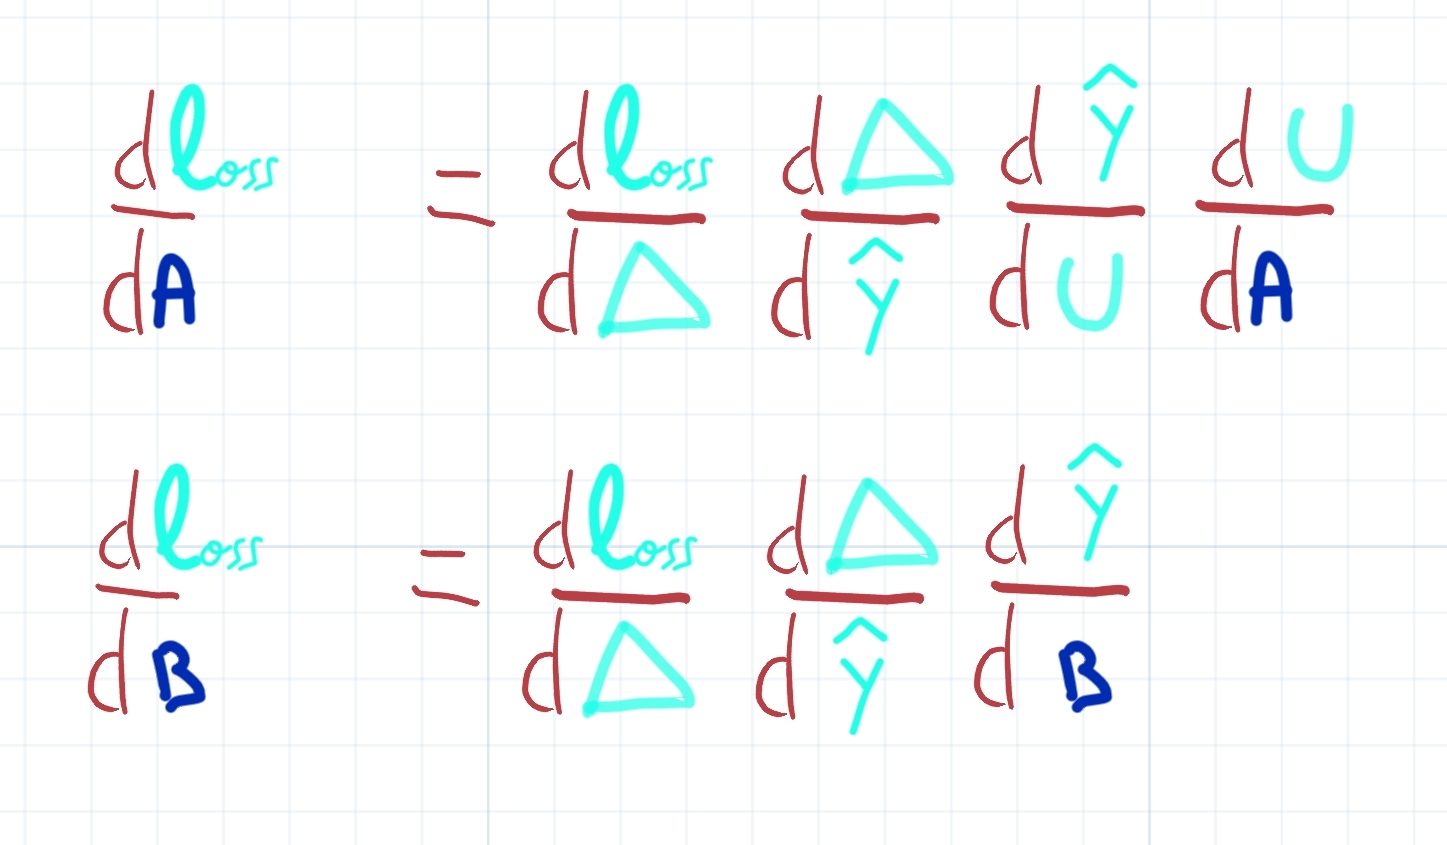 dloss/dA = dloss/dΔ dΔ/dŶ dŶ/dU dU/dA
dloss/dB = dloss/dΔ dΔ/dŶ dŶ/dB